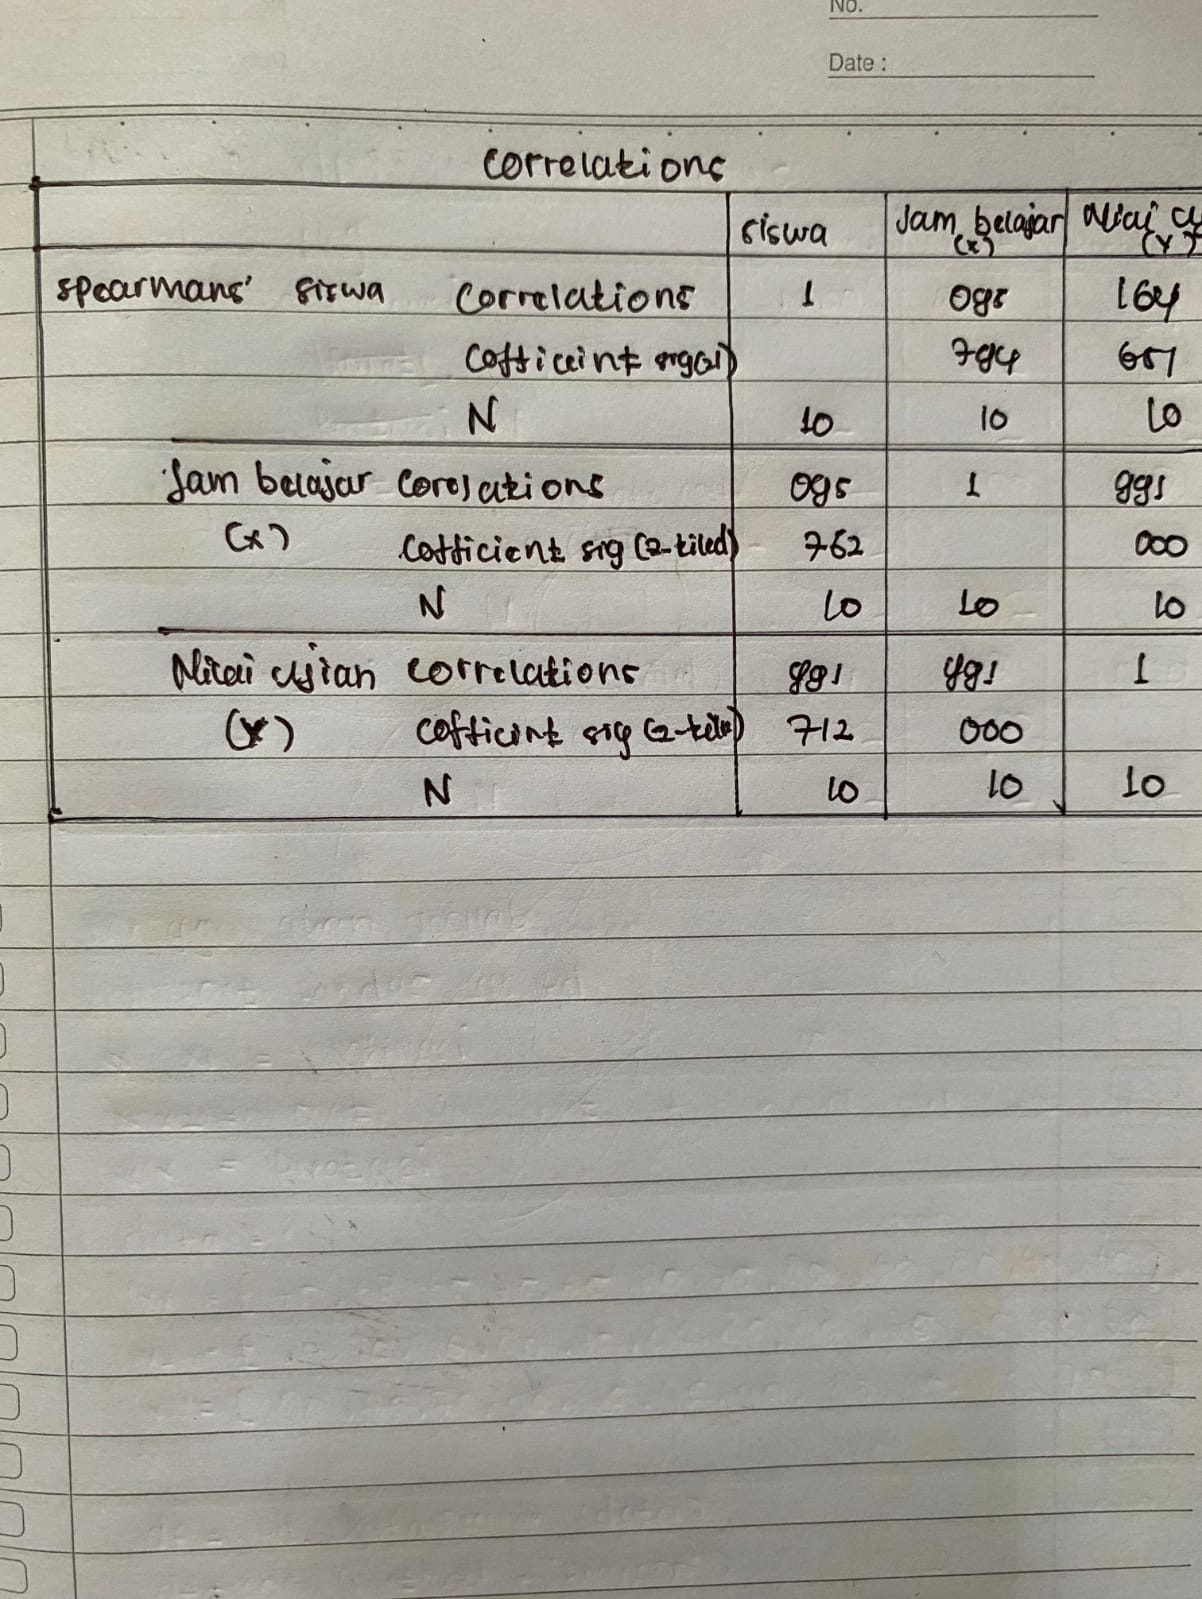 No.
Date :
Correlations
siswa Jam belajar Nilai
(x) (Y)
Spearmans' siswa Correlations 1 095 164
Cofficeint 794 651
N 10 10 10
Jam belajar Corolations 095 1 991
(x) Cofficient sig (2-tiled) 762 000
N 10 10 10
Nilai Ujian Correlations 991 991 1
(Y) Cofficint sig (2-tiled) 712 000
N 10 10 10